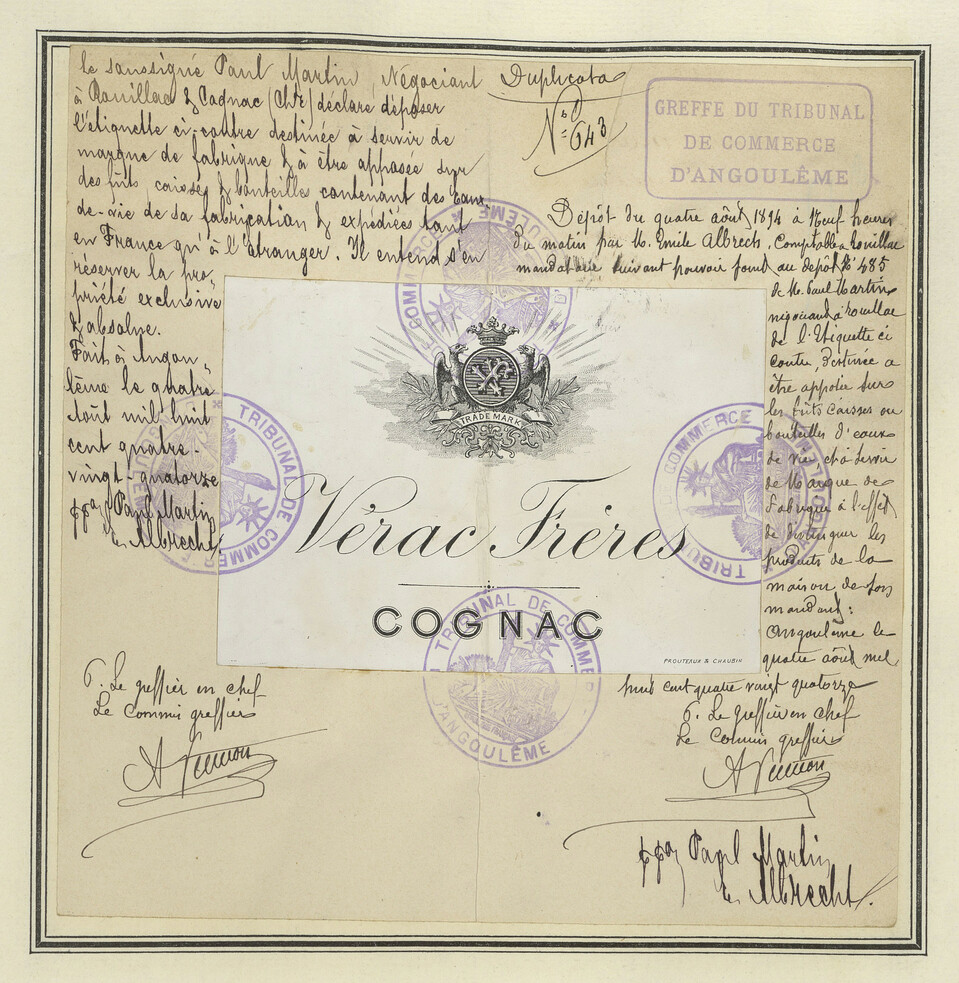 Le soussigné Paul Martin Négociant
à Rouillac & Cognac (Chte) déclare déposer
l'étiquette ci-contre destinée à servir de
marque de fabrique & à être apposée sur
des fûts, caisses & bouteilles contenant des eaux-
de-vie de sa fabrication & expédiées tant
en France qu'à l'étranger. Il entend s'en
réserver la pro
priété exclusive
& absolue.
Fait à Angou
lême le quatre
août mil huit
cent quatre-
vingt-quatorze
ppon Paul Martin
E. Albrecht
Duplicata
No 643
GREFFE DU TRIBUNAL
DE COMMERCE
D'ANGOULÊME
Dépôt du quatre août 1894 à Neuf heures
du matin par M. Emile Albrech, Comptable à Rouillac
mandataire suivant pouvoir joint au dépôt No 485
de M. Paul Martin
négociant à Rouillac
de l'Etiquette ci
contre, destinée a
être apposée sur
les fûts caisses ou
bouteilles d'eaux
de vie et à servir
de Marque de
Fabrique à l'effet
de distinguer les
produits de la
maison de son
mandant:
Angoulême le
quatre août mil
huit cent quatre vingt quatorze
TRADE MARK
Vérac Frères
COGNAC
PROUTEAUX & CHAUBIN
TRIBUNAL DE COMMERCE
D'ANGOULÊME
TRIBUNAL DE COMMER
COMMERCE
TRIBU
P. Le greffier en chef
Le Commis greffier
P. Le greffier en chef
Le Commis greffier
ppon Paul Martin
E. Albrecht